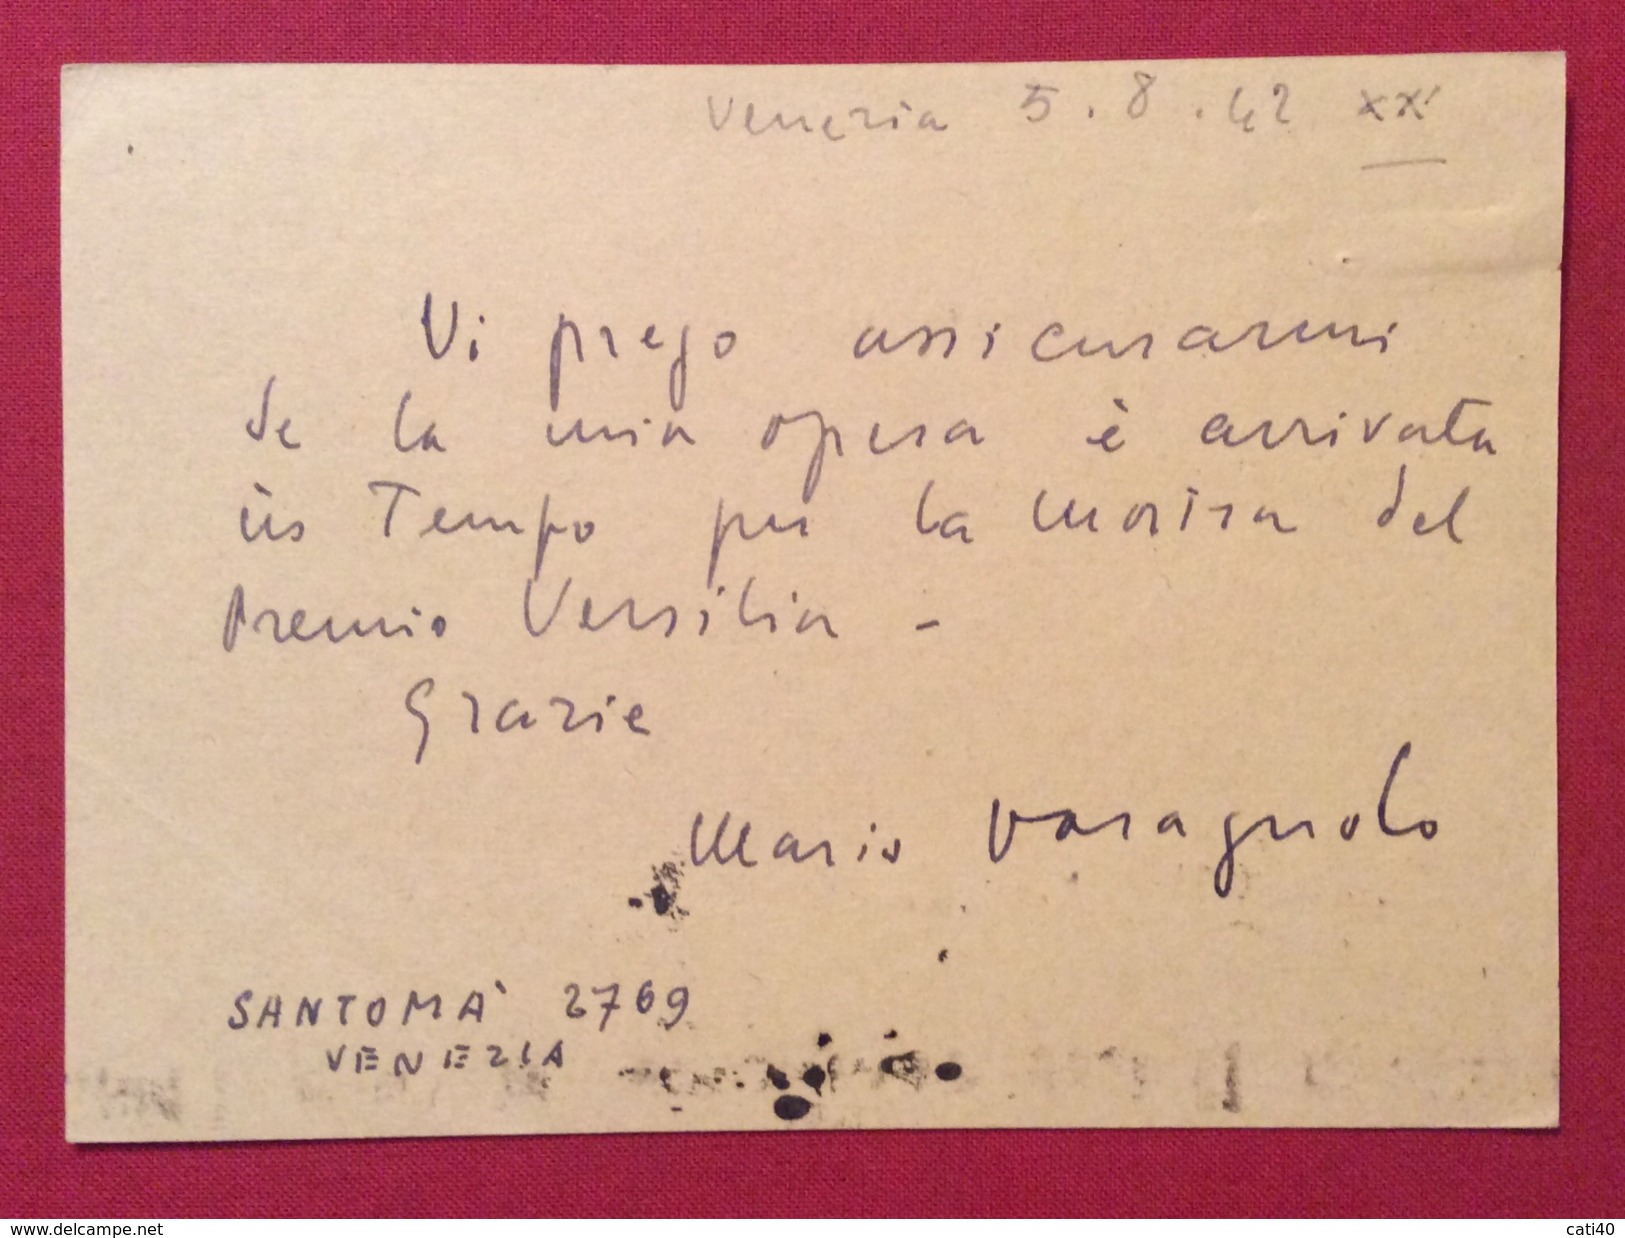 Venezia 5.8.42 XX
Vi prego assicurarmi
se la mia opera è arrivata
in Tempo per la mostra del
Premio Versilia -
Grazie
Mario Varagnolo
SANTOMÀ 2769
VENEZIA
www.delcampe.net
cati40